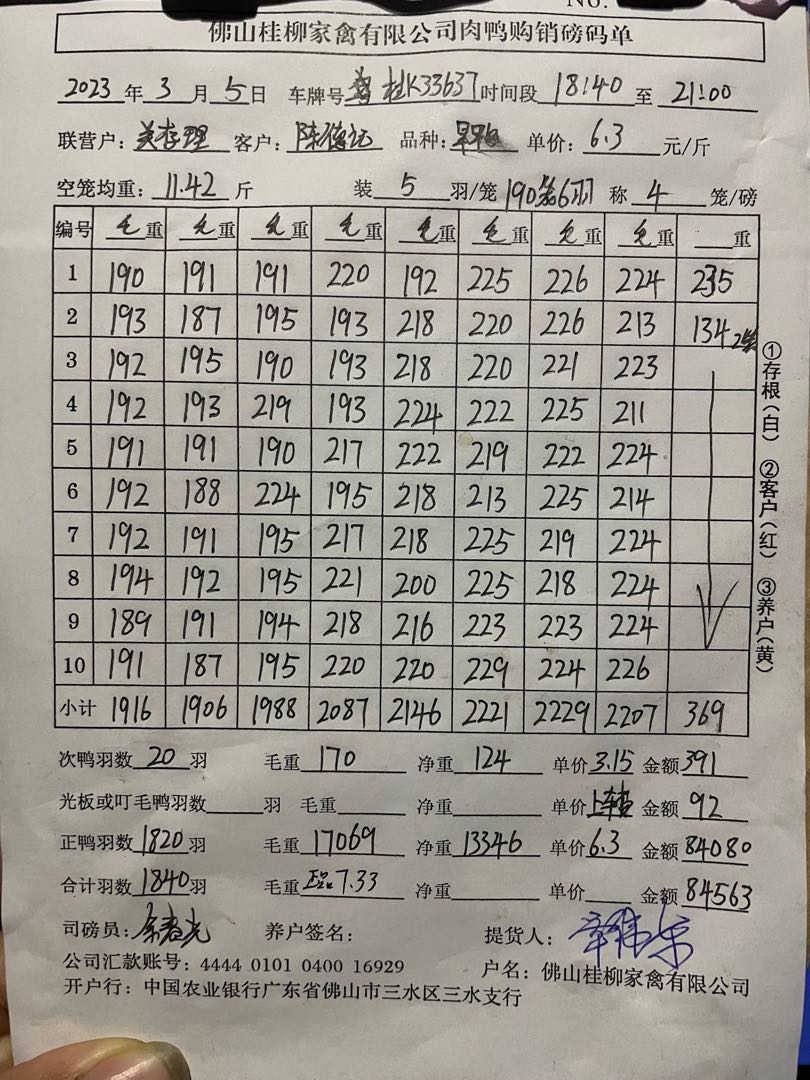 No.
佛山桂柳家禽有限公司肉鸭购销磅码单
2023年3月5日 车牌号 桂K33637 时间段 18:40 至 21:00
联营户: 理 客户: 陈 品种: 单价: 6.3 元/斤
空笼均重: 11.42 斤 装 5 羽/笼 190笼6羽 称 4 笼/磅
编号 毛重 毛重 毛重 毛重 毛重 毛重 毛重 毛重 重
1 190 191 191 220 192 225 226 224 235
2 193 187 195 193 218 220 226 213 134 2笼
3 192 195 190 193 218 220 221 223
4 192 193 219 193 224 222 225 211
5 191 191 190 217 222 219 222 224
6 192 188 224 195 218 213 225 214
7 192 191 195 217 218 225 219 224
8 194 192 195 221 200 225 218 224
9 189 191 194 218 216 223 223 224
10 191 187 195 220 220 229 224 226
小计 1916 1906 1988 2087 2146 2221 2229 2207 369
①存根(白) ②客户(红) ③养户(黄)
次鸭羽数 20 羽 毛重 170 净重 124 单价 3.15 金额 391
光板或叮毛鸭羽数 羽 毛重 净重 单价 金额 92
正鸭羽数 1820 羽 毛重 17069 净重 13346 单价 6.3 金额 84080
合计羽数 1840 羽 毛重 7.33 净重 单价 金额 84563
司磅员: 养户签名: 提货人:
公司汇款账号: 4444 0101 0400 16929 户名: 佛山桂柳家禽有限公司
开户行: 中国农业银行广东省佛山市三水区三水支行